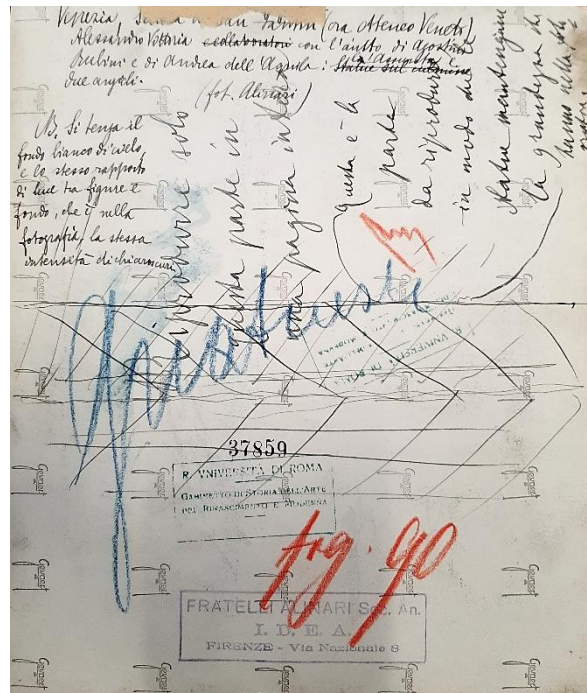 Venezia, Scuola di San Fantin (ora Ateneo Veneto)
Alessandro Vittoria e collaboratori con l'aiuto di Agostino
Rubini e di Andrea dell'Aquila: Statue sul culmine
due angeli.
(fot. Alinari)
NB. Si tenga il
fondo bianco di cielo,
e lo stesso rapporto
di luce tra figure e
fondo, che è nella
fotografia, la stessa
intensità di chiaroscuri
riprodurre solo
questa parte in
una pagina intera
questa è la
parte
da riprodurre
in modo che le
statue mantengano
la grandezza che
hanno nella
37859
R. VNIVERSITÀ DI ROMA
GABINETTO DI STORIA DELL'ARTE
DEL RINASCIMENTO E MODERNA
R. VNIVERSITÀ DI ROMA
fig. 90
FRATELLI ALINARI Soc. An.
I. D. E. A.
FIRENZE - Via Nazionale 8
Gevaert